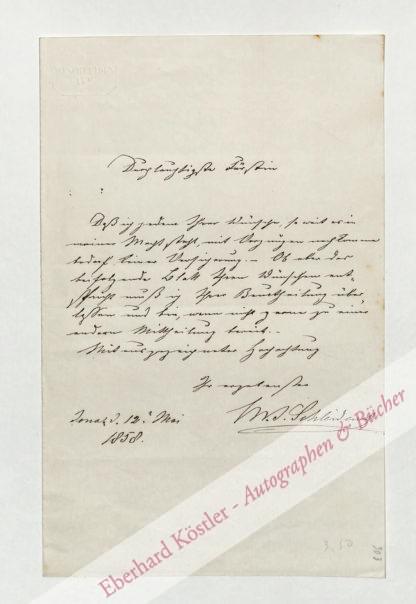 Durchlauchtigste Fürstin
Daß ich jedem Ihrer Wünsche, so weit es in
meiner Macht steht, mit Vergnügen nachkomme
bedarf keiner Versicherung. – Ob aber das
beifolgende Blatt Ihren Wünschen ent-
spricht muß ich Ihrer Beurtheilung über-
lassen und bin, wenn nicht gerne zu einer
andern Mittheilung bereit. –
Mit ausgezeichneter Hochachtung
Ihr ergebenster
Jena d. 12. Mai
1858.
M. J. Schleiden
Eberhard Köstler - Autographen & Bücher
3,50